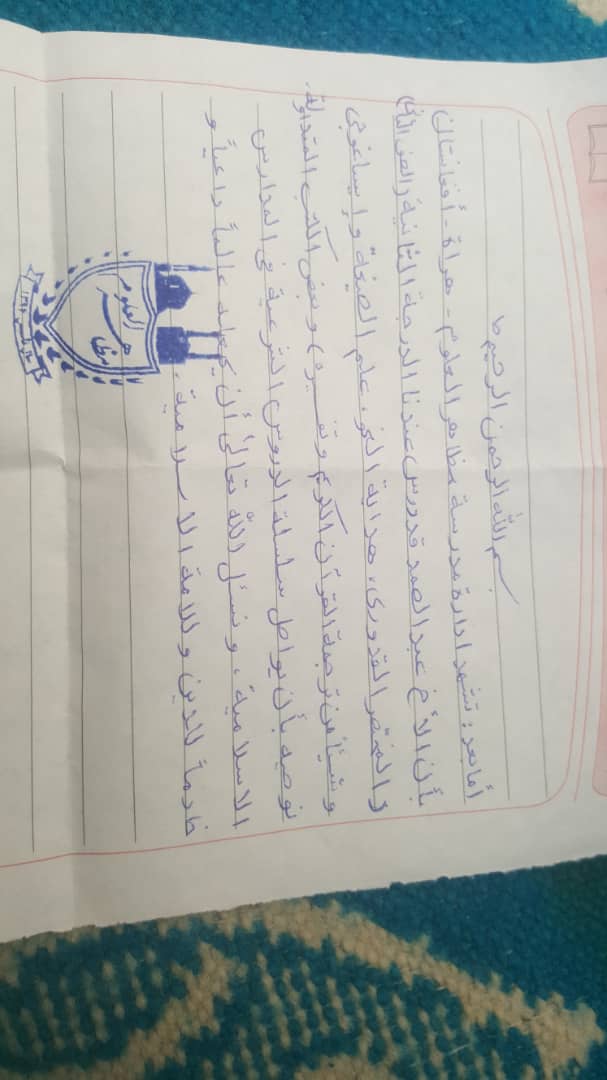 بسم الله الرحمن الرحيم ط
أما بعد: تشهد ادارة مدرسة مظاهر العلوم - هراة - أفغانستان
بأن الأخ عبد الصمد قد درس عندنا الدرجة الثانية (الصف الثاني)
(المختصر القدوري، هداية النحو، علم الصيغة و إيساغوجي
وشيئا من ترجمة القرآن الكريم وتفسيره) وبعض الكتب المتداولة.
نوصيه بأن يواصل سلسلة الدروس الشرعية في المدارس
الاسلامية، ونسئل الله تعالى أن يجعله عالماً داعياً و
خادماً للدين وللامة الاسلامية.
العلوم
هراة